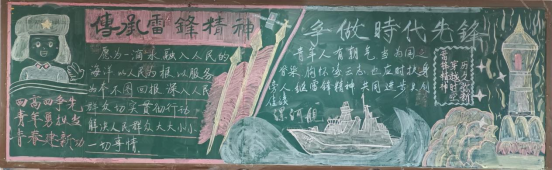 傳承雷鋒精神
愿为一滴水融入人民的
海洋以人民为根以服务
为本不图回报深入人民
群众切实贯彻行动
解决人民群众大大小小
一切事情
四高四争先
青年勇担当
青春建新功
争做時代先鋒
青年人有朝气当为国之
人拟雷锋精神共同进步
历久弥新
穿越时空
雷锋精神